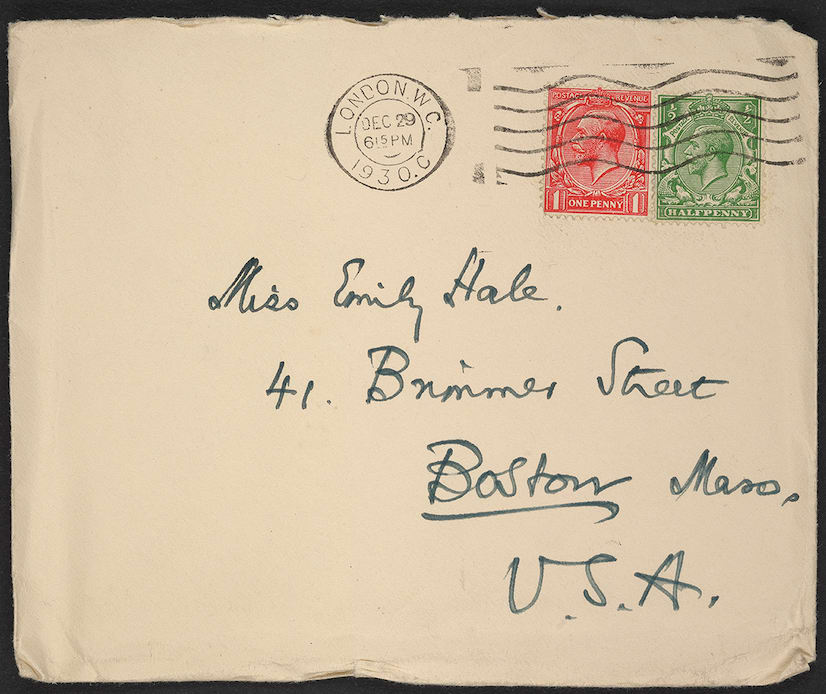 LONDON W.C.
DEC 29
6 15 PM
1930.C
POSTAGE REVENUE
1 ONE PENNY 1
½ ½
HALFPENNY
Miss Emily Hale.
41. Brimmer Street
Boston Mass.
U.S.A.